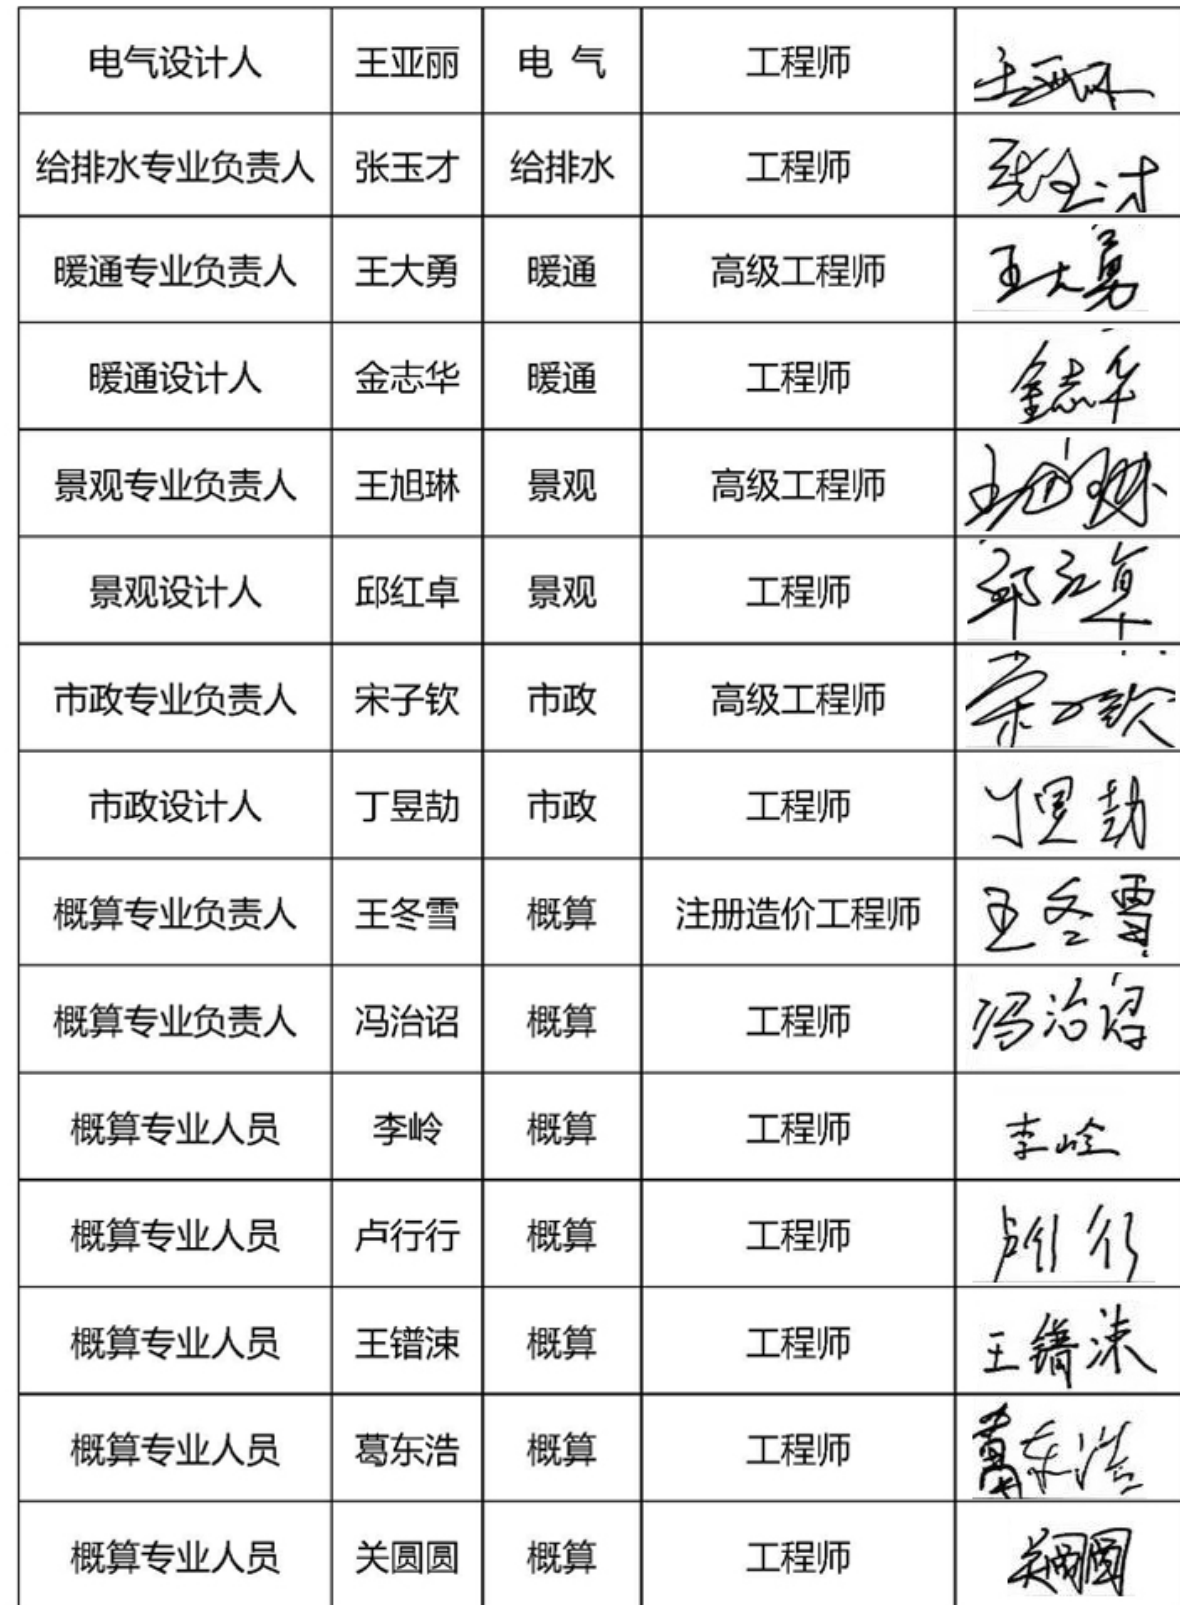 电气设计人 王亚丽 电 气 工程师 王亚丽
给排水专业负责人 张玉才 给排水 工程师 张玉才
暖通专业负责人 王大勇 暖通 高级工程师 王大勇
暖通设计人 金志华 暖通 工程师 金志华
景观专业负责人 王旭琳 景观 高级工程师 王旭琳
景观设计人 邱红卓 景观 工程师 邱红卓
市政专业负责人 宋子钦 市政 高级工程师 宋子钦
市政设计人 丁昱劼 市政 工程师 丁昱劼
概算专业负责人 王冬雪 概算 注册造价工程师 王冬雪
概算专业负责人 冯治诏 概算 工程师 冯治诏
概算专业人员 李岭 概算 工程师 李岭
概算专业人员 卢行行 概算 工程师 卢行行
概算专业人员 王镨涑 概算 工程师 王镨涑
概算专业人员 葛东浩 概算 工程师 葛东浩
概算专业人员 关圆圆 概算 工程师 关圆圆